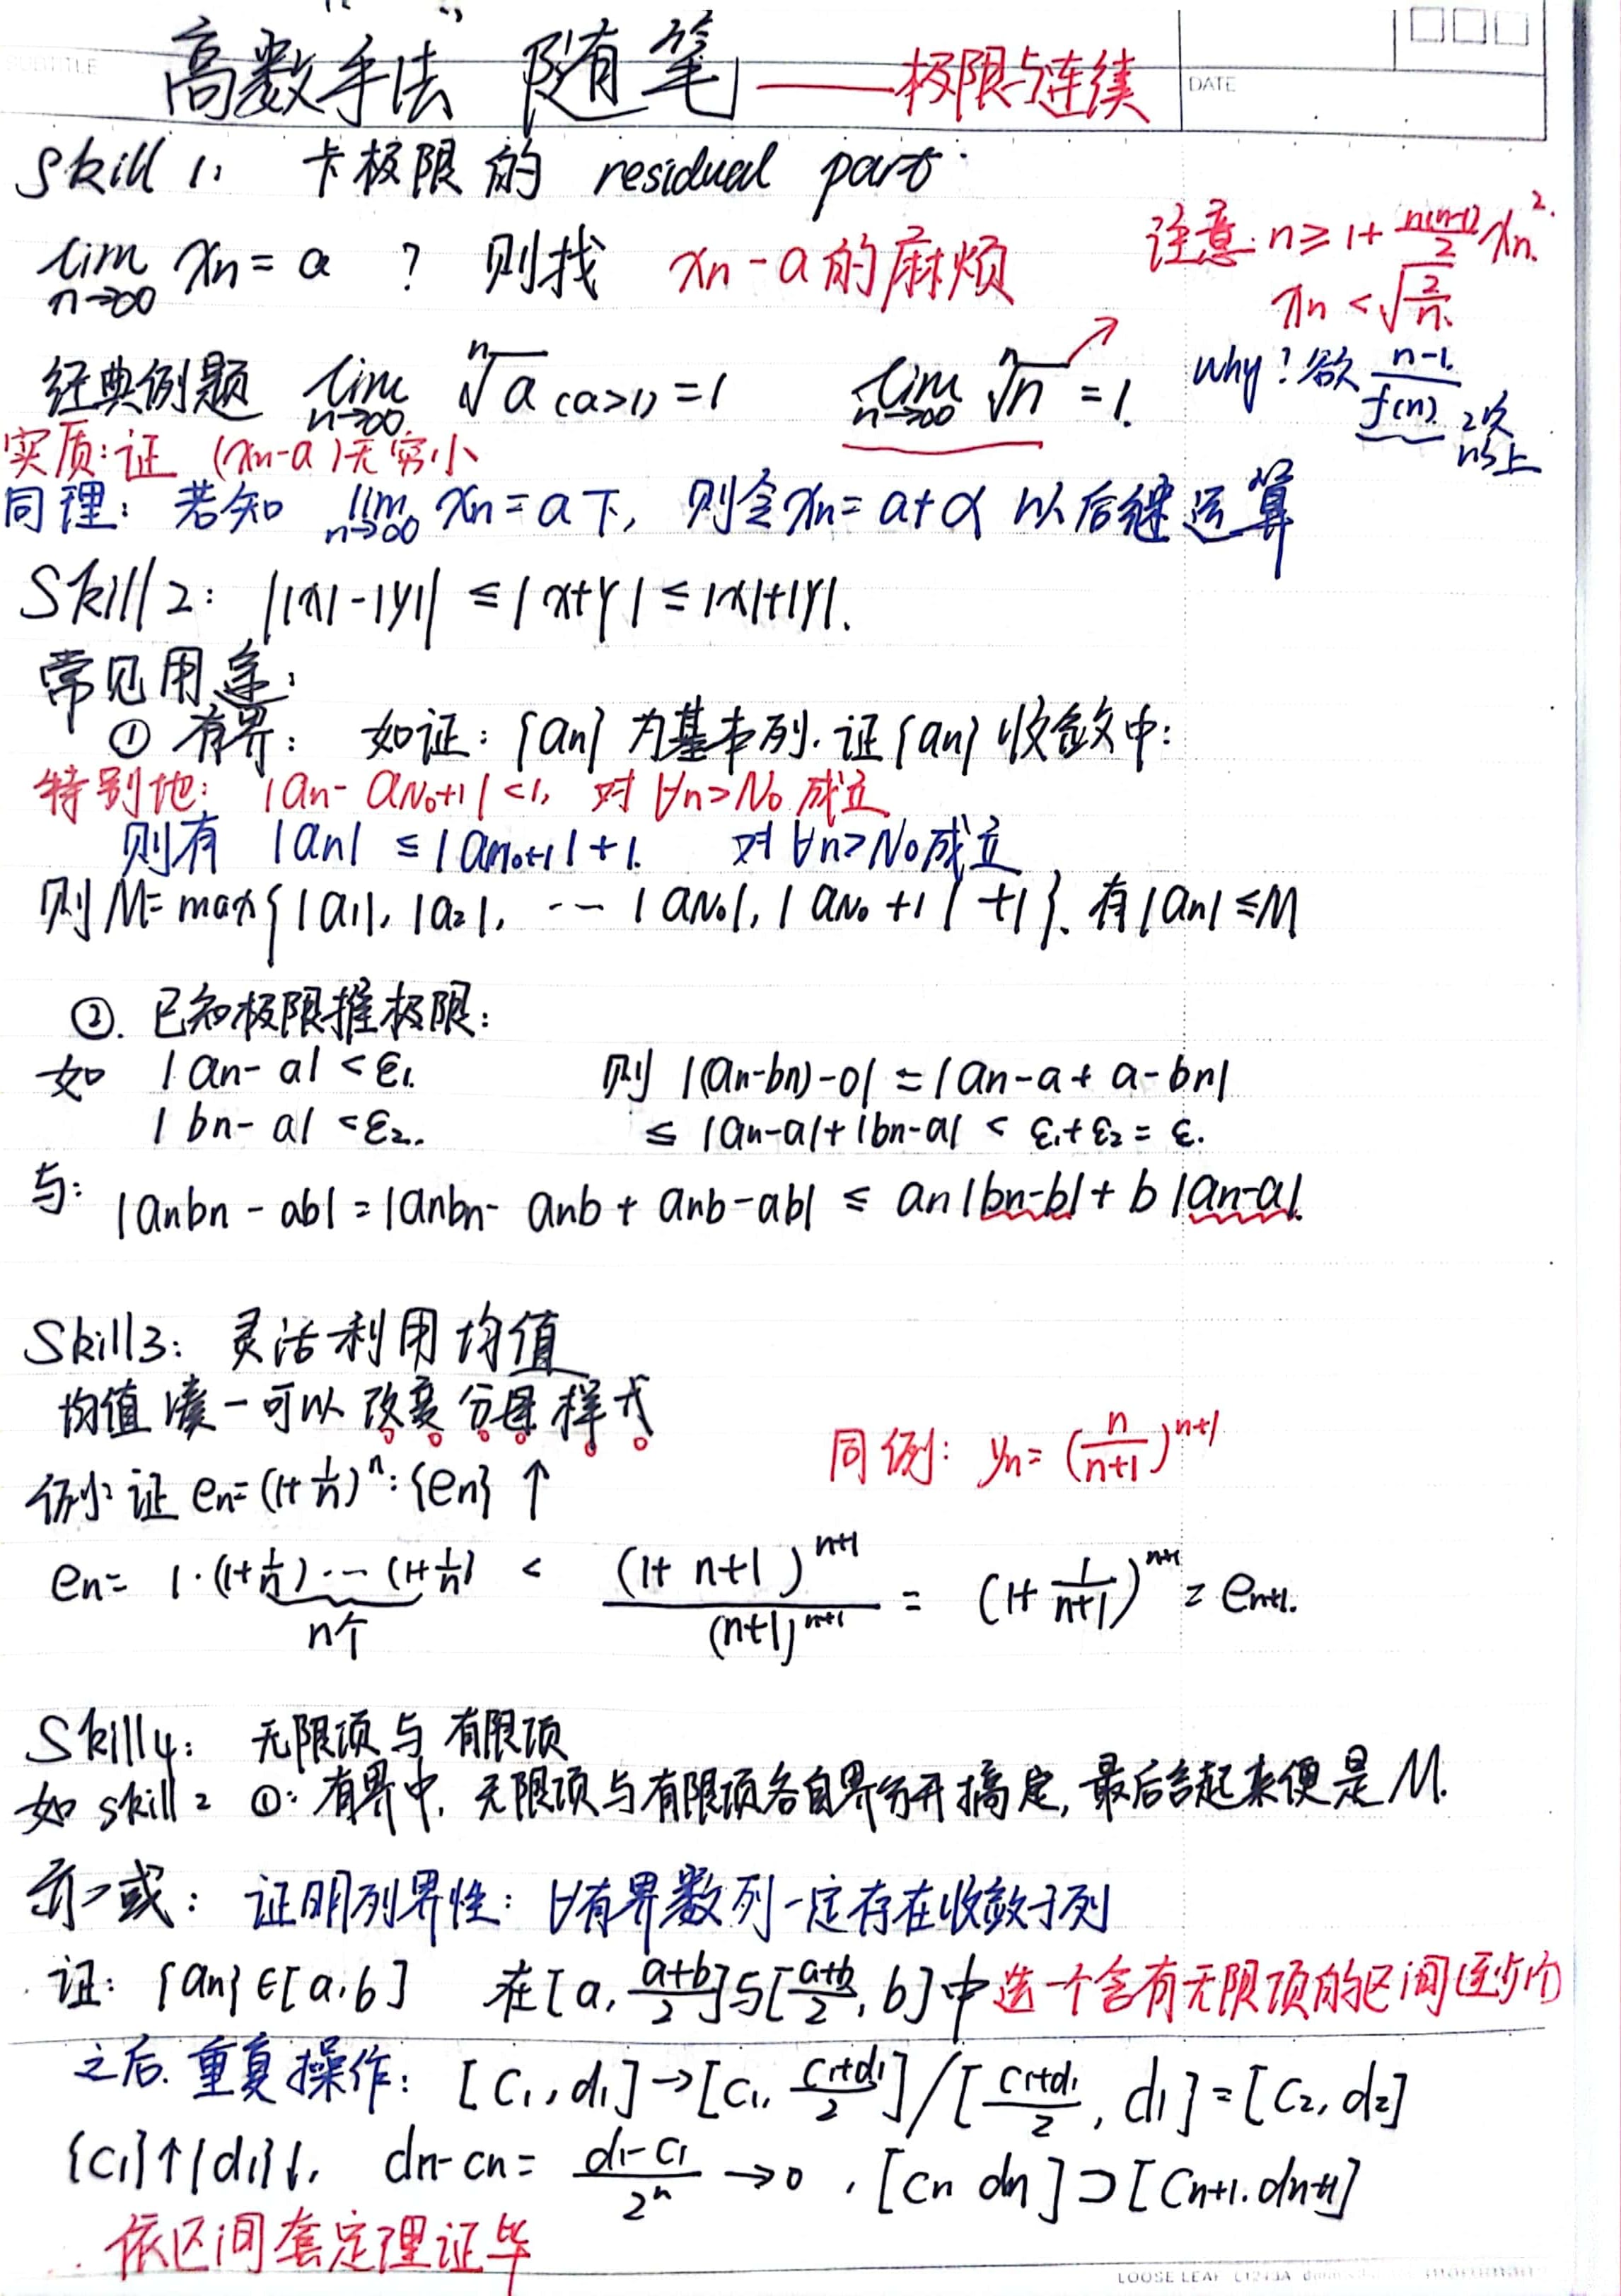 高数手法 随笔——极限与连续
SUBTITLE
DATE
Skill 1: 卡极限的 residual part.
lim n→∞ xn = a ? 则找 xn-a的麻烦
注意: n ≥ 1+ n(n-1)/2 xn².
xn < √(2/n).
经典例题 lim n→∞ ⁿ√a (a>1) = 1 lim n→∞ ⁿ√n = 1.
why? 欲 n-1/f(n) 2次以上
实质:证 (xn-a)无穷小
同理: 若知 lim n→∞ xn = a下, 则令xn = a+α 以后继运算
Skill 2: ||x|-|y|| ≤ |x+y| ≤ |x|+|y|.
常见用途:
① 有界: 如证: {an} 为基本列. 证{an} 收敛中:
特别地: |an - aN₀+1| < 1, 对 ∀n>N₀ 成立
则有 |an| ≤ |aN₀+1| + 1. 对 ∀n>N₀成立
则 M = max{|a1|, |a2|, … |aN₀|, |aN₀+1| +1}. 有|an| ≤ M
②. 已知极限推极限:
如 |an - a| < ε1. 则 |(an-bn)-0| = |an-a + a-bn|
|bn - a| < ε2. ≤ |an-a|+|bn-a| < ε1+ε2 = ε.
与: |anbn - ab| = |anbn - anb + anb-ab| ≤ an|bn-b| + b|an-a|.
Skill3: 灵活利用均值
均值凑一可以 改变分母样式
同例: yn = (n/n+1)ⁿ⁺¹
例: 证 en=(1+1/n)ⁿ: {en} ↑
en = 1·(1+1/n)…(1+1/n) < (1+ n+1)ⁿ⁺¹/(n+1)ⁿ⁺¹ = (1+ 1/n+1)ⁿ⁺¹ = en+1.
n个
Skill4: 无限项与有限项
如 skill 2 ①: 有界中, 无限项与有限项各自界分开搞定, 最后合起来便是 M.
或: 证明列界性: ∀有界数列一定存在收敛子列
证: {an}∈[a,b] 在[a, a+b/2]与[a+b/2, b]中 选一个含有无限项的区间
之后. 重复操作: [c1, d1]→[c1, c1+d1/2]/[c1+d1/2, d1] = [c2, d2]
{c1}↑{d1}↓, dn-cn = d1-c1/2ⁿ → 0 , [cn dn]⊃[cn+1. dn+1]
∴依区间套定理证毕
LOOSE LEAF